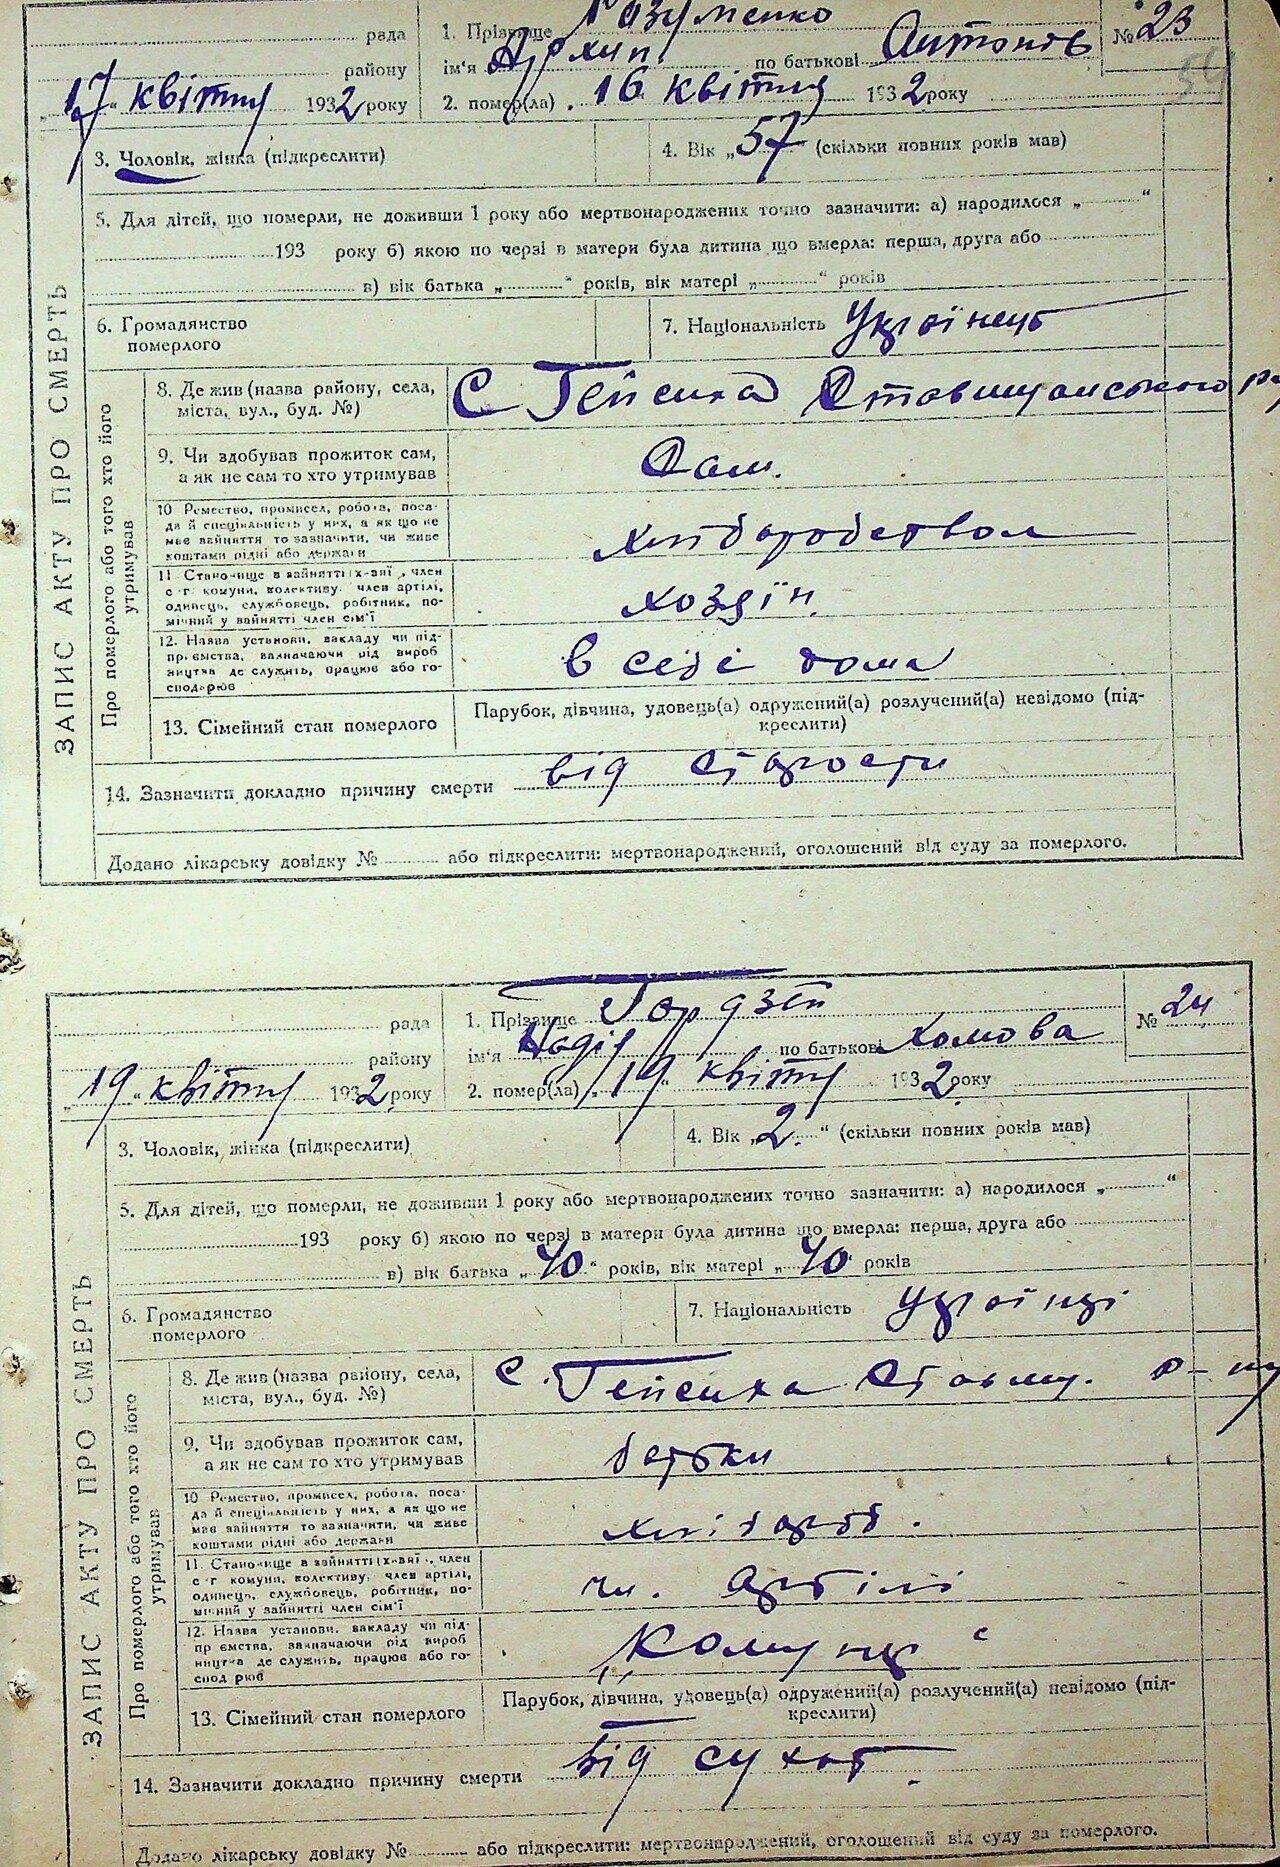 рада
1. Прізвище Разуменко
№ 23
району
ім'я Архип по батькові Антонів
54
„17“ квітня 1932 року
2. помер(ла) 16 квітня 1932 року
ЗАПИС АКТУ ПРО СМЕРТЬ
3. Чоловік, жінка (підкреслити)
4. Вік „57“ (скільки повних років мав)
5. Для дітей, що померли, не доживши 1 року або мертвонароджених точно зазначити: а) народилося „ “
193 року б) якою по черзі в матери була дитина що вмерла: перша, друга або
в) вік батька „ “ років, вік матері „ “ років
6. Громадянство
померлого
7. Національність Українець
Про померлого або того хто його
утримував
8. Де жив (назва району, села,
міста, вул., буд. №)
С Гейсиха Ставищанського р
9. Чи здобував прожиток сам,
а як не сам то хто утримував
Сам.
10 Ремество, промисел, робота, поса-
да й спеціяльність у них, а як що не
має зайняття то зазначити, чи живе
коштами рідні або держави
хліборобством
11 Становище в зайнятті (х-вяї, член
с-г комуни, колективу, член артілі,
одинець, службовець, робітник, по-
мічний у зайнятті член сім'ї
хозяїн
12. Назва установи, закладу чи під-
приємства, зазначаючи рід вироб
ництва де служить, працює або го-
сподарює
в себе дома
13. Сімейний стан померлого
Парубок, дівчина, удовець(а) одружений(а) розлучений(а) невідомо (під-
креслити)
14. Зазначити докладно причину смерти від старости
Додано лікарську довідку № або підкреслити: мертвонароджений, оголошений від суду за померлого.
рада
1. Прізвище Гордзій
№ 24
району
ім'я Надія по батькові Хомова
„19“ квітня 1932 року
2. помер(ла) „19“ квітня 1932 року
ЗАПИС АКТУ ПРО СМЕРТЬ
3. Чоловік, жінка (підкреслити)
4. Вік „2“ (скільки повних років мав)
5. Для дітей, що померли, не доживши 1 року або мертвонароджених точно зазначити: а) народилося „ “
193 року б) якою по черзі в матери була дитина що вмерла: перша, друга або
в) вік батька „40“ років, вік матері „40“ років
6. Громадянство
померлого
7. Національність Українці
Про померлого або того хто його
утримував
8. Де жив (назва району, села,
міста, вул., буд. №)
с. Гейсиха Ставищ. р-ну
9. Чи здобував прожиток сам,
а як не сам то хто утримував
батьки
10 Ремество, промисел, робота, поса-
да й спеціяльність у них, а як що не
має зайняття то зазначити, чи живе
коштами рідні або держави
хлібороб.
11. Становище в зайнятті (х-вяї, член
с-г комуни, колективу, член артілі,
одинець, службовець, робітник, по-
мічний у зайнятті член сім'ї
чл. артілі
12. Назва установи, закладу чи під-
приємства, зазначаючи рід вироб
ництва де служить, працює або го-
сподарює
„Комунар“
13. Сімейний стан померлого
Парубок, дівчина, удовець(а) одружений(а) розлучений(а) невідомо (під-
креслити)
14. Зазначити докладно причину смерти від сухот.
Додано лікарську довідку № або підкреслити: мертвонароджений, оголошений від суду за померлого.